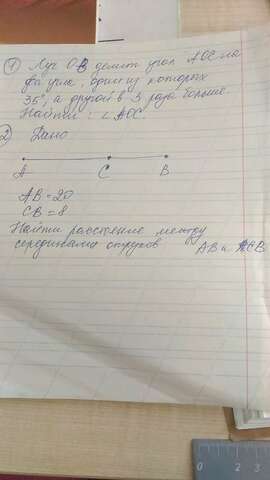 ① Луч OB делит угол AOC на
два угла, один из которых
35°, а другой в 3 раза больше.
Найти: ∠AOC.
② Дано
A C B
AB = 20
CB = 8
Найти расстояние между
серединами отрезков AB и CB
0 2 3